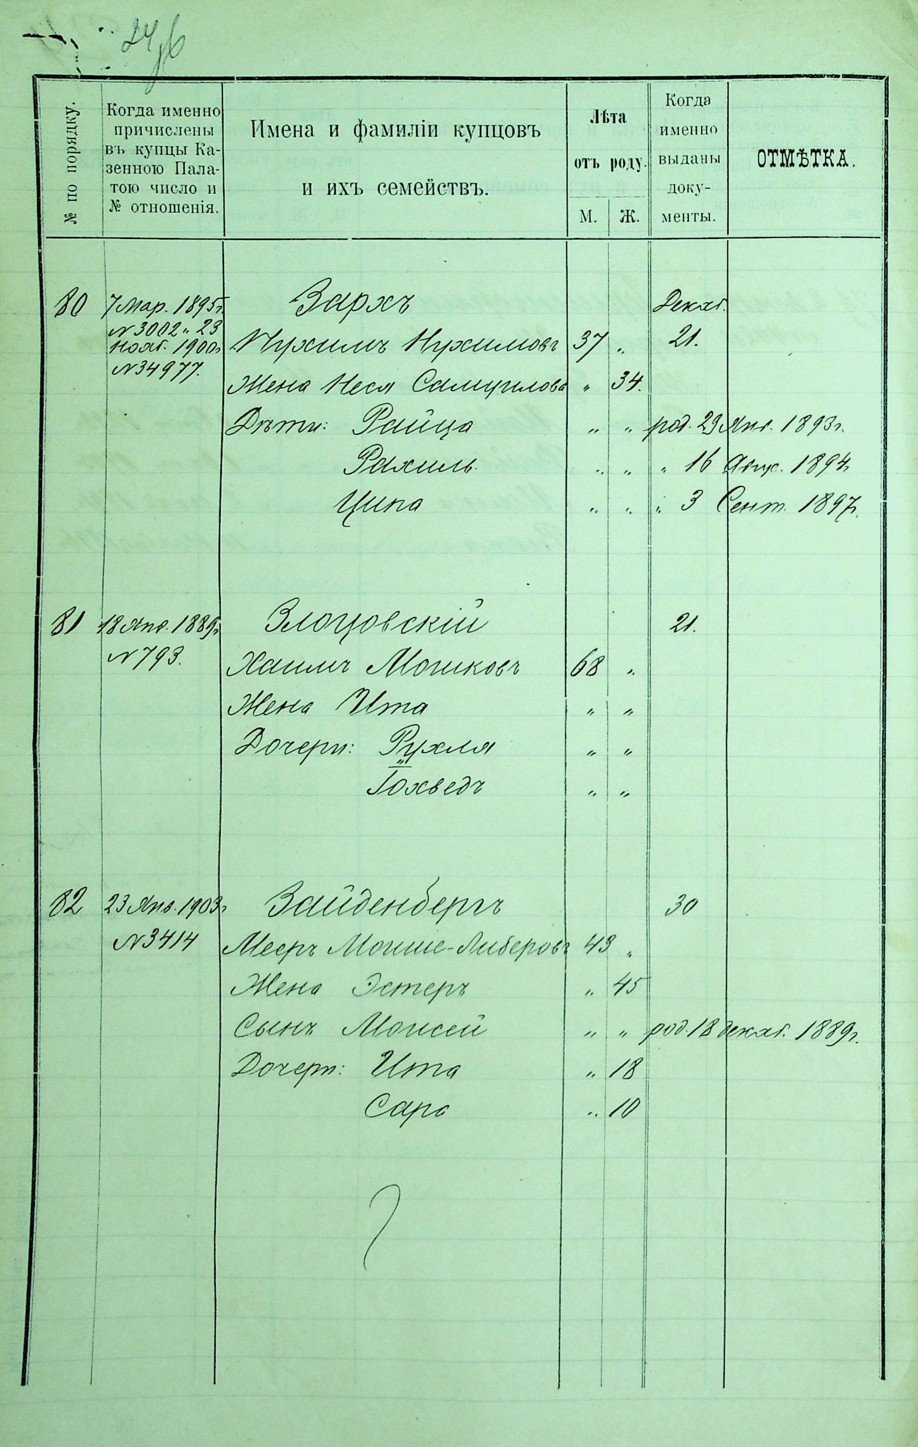 24
№ по порядку.
Когда именно причислены въ купцы Казенною Палатою число и № отношенія.
Имена и фамиліи купцовъ и ихъ семействъ.
Лѣта отъ роду.
М.
Ж.
Когда именно выданы документы.
ОТМѢТКА.
80 7 Мар. 1895г. Зархъ Декаб.
№3002 " 23
Нояб. 1900г. Нухимъ Нухимовъ 37 " 21.
№34977.
Жена Неся Самуилова " 34.
Дѣти: Райца " " род. 29 Янв. 1893г.
Рахиль " " " 16 Авг. 1894
Ципа " " " 3 Сент. 1897г.
81 18 Янв. 1889г. Злоцовскій 21.
№793.
Хаимъ Мошковъ 68 "
Жена Ита " "
Дочери: Рухля " "
Іохведъ " "
82 23 Янв. 1903г. Зайденбергъ 30
№3414 Мееръ Моише-Либеровъ 43 "
Жена Эстеръ " 45
Сынъ Моисей " " род. 18 декаб. 1889г.
Дочери: Ита " 18
Сара " 10